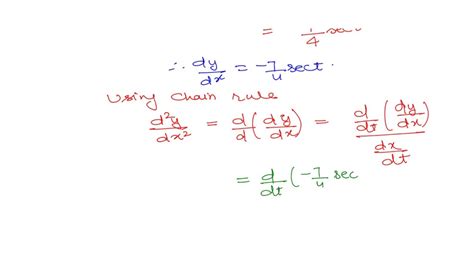 = 1/4 sec
∴ dy/dx = -7/4 sect.
Using Chain rule
d²y/dx² = d/d (dy/dx) = d/dt (dy/dx) / dx/dt
= d/dt (-7/4 sec